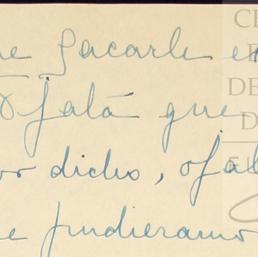 ue Sacarle e
Ojalá que
or dicho, ojal
e pudieramo
CE
DE
D